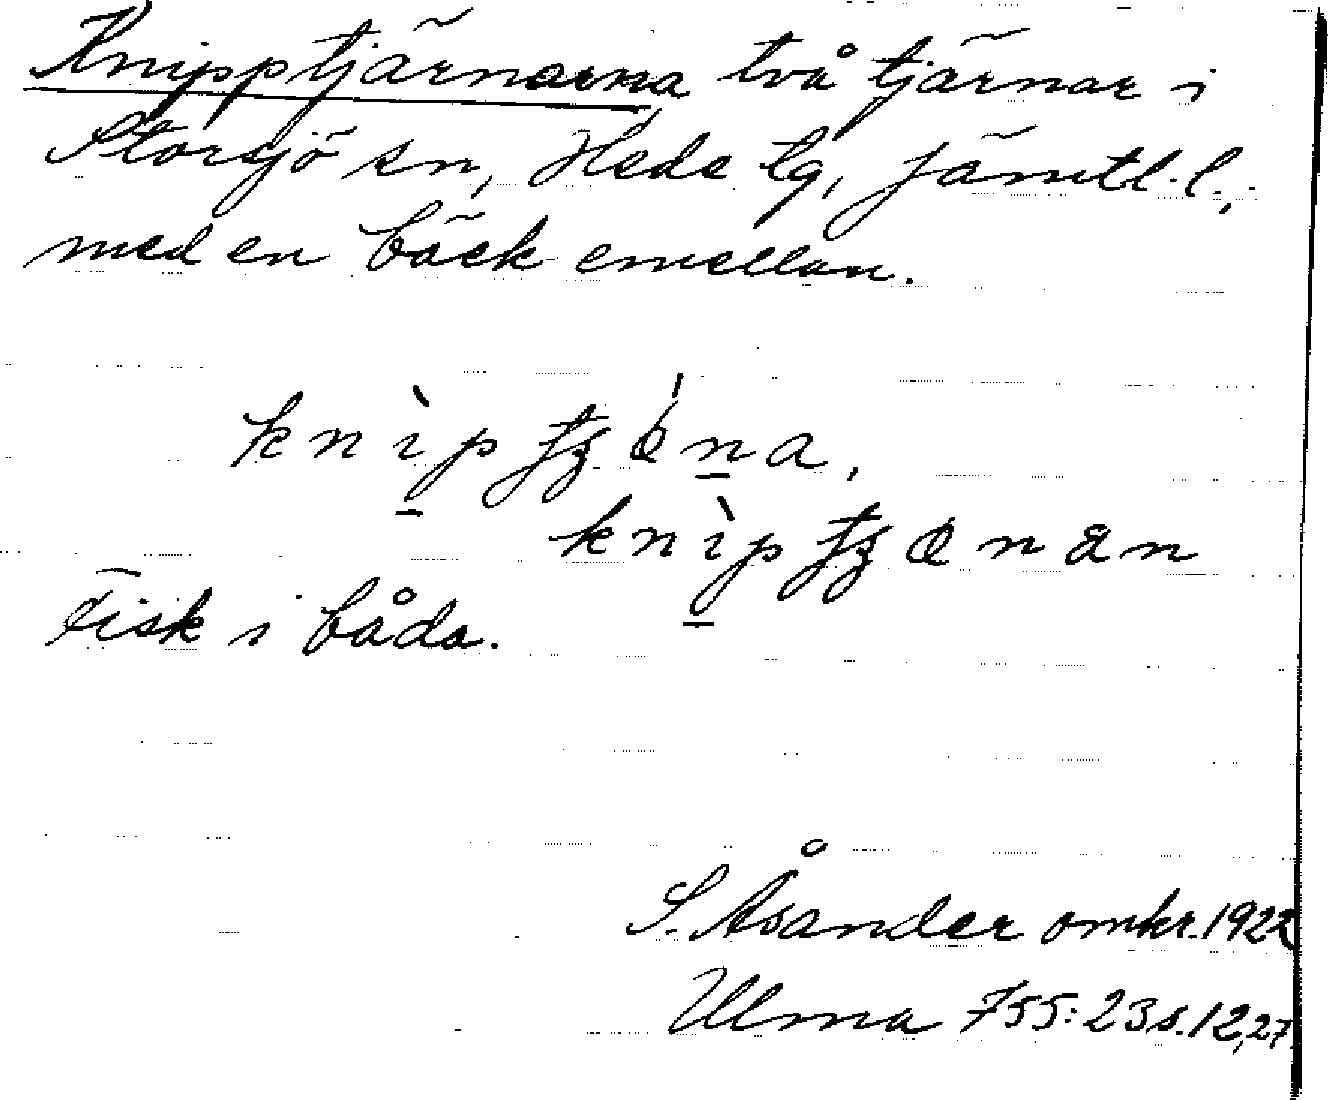 Knipptjärnarna två tjärnar i
Storsjö sn, Hede tg, Jämtl. l.,
med en bäck emellan.
Fisk i båda.
S. Åsander omkr. 1922
Ulma 755:23 s. 12, 27